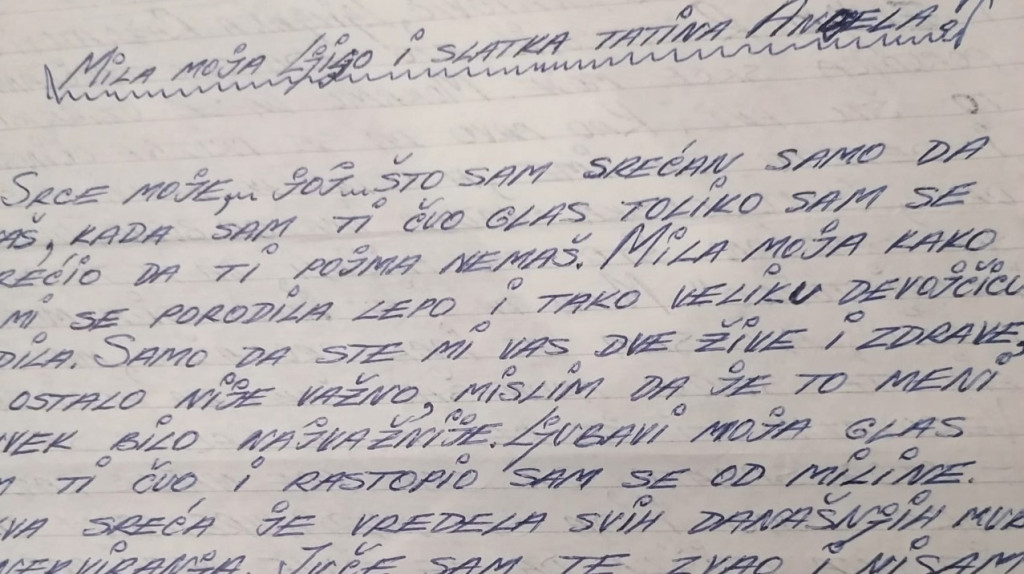 MILA MOJA LJIGO I SLATKA TATINA ANĐELA!
SRCE MOJE,,, JOJ... ŠTO SAM SREĆAN SAMO DA
AŠ, KADA SAM TI ČUO GLAS TOLIKO SAM SE
REĆIO DA TI POJMA NEMAŠ. MILA MOJA KAKO
MI SE PORODILA LEPO I TAKO VELIKU DEVOJČICU
DILA. SAMO DA STE MI VAS DVE ŽIVE I ZDRAVE,
OSTALO NIJE VAŽNO, MISLIM DA JE TO MENI
VEK BILO NAJVAŽNIJE. LJUBAVI MOJA GLAS
M TI ČUO I RASTOPIO SAM SE OD MILINE.
VA SREĆA JE VREDELA SVIH DANAŠNJIH
NERVIRANJA. JUČE SAM TE ZVAO I NISAM